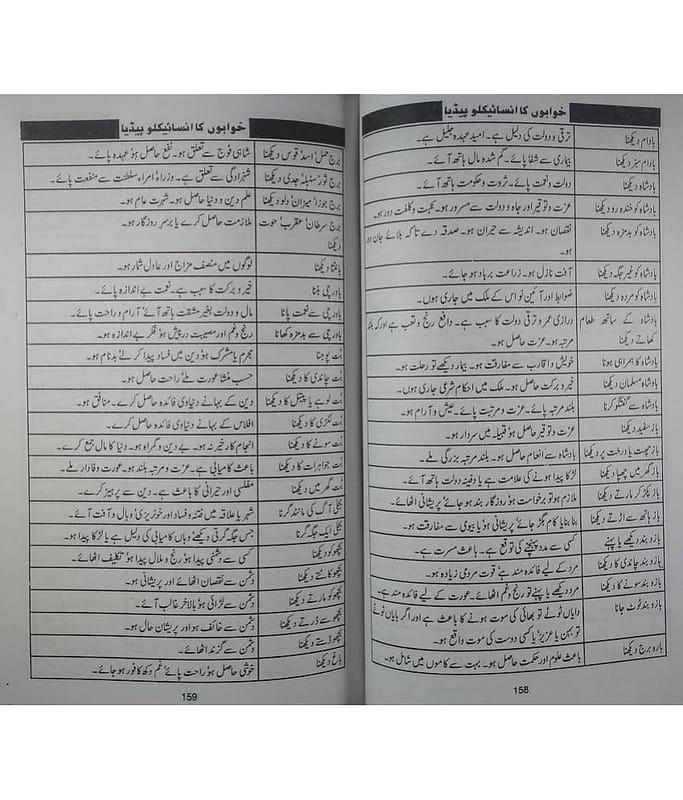 خوابوں کا انسائیکلو پیڈیا
بادام دیکھنا ترقی و دولت کی دلیل ہے۔ امید عہدہ جلیل ہے۔
بادام سبز دیکھنا بیماری سے شفا پائے۔ گم شدہ مال ہاتھ آئے۔
بادشاہ دیکھنا دولت و نعمت پائے۔ ثروت و حکومت ہاتھ آئے۔
بادشاہ کو خندہ رو دیکھنا عزت و توقیر اور جاہ و دولت سے مسرور ہو۔ نکبت و کلفت دور ہو۔
بادشاہ کو بدمزہ دیکھنا نقصان ہو۔ اندیشہ سے حیران ہو۔ صدقہ دے تاکہ بلائے جان دور
ہو۔
بادشاہ کو غیر جگہ دیکھنا آفت نازل ہو۔ زراعت برباد ہو جائے۔
بادشاہ کو مردہ دیکھنا ضوابط اور آئین نو اس کے ملک میں جاری ہوں۔
بادشاہ کے ساتھ طعام درازی عمر و ترقی دولت کا سبب ہے۔ دافع رنج و تعب ہے اور کہ بلند
کھاتے دیکھنا مرتبہ ہو۔ عزت حاصل ہو۔
بادشاہ کا ہمراہی ہونا خویش و اقارب سے مفارقت ہو۔ بیمار دیکھے تو رحلت ہو۔
بادشاہ مسلمان دیکھنا خیر و برکت حاصل ہو۔ ملک میں احکام شرعی جاری ہوں۔
بادشاہ سے گفتگو کرنا بلند مرتبہ پائے۔ عزت و مرتبت پائے۔ عیش و آرام ہو۔
باز سفید دیکھنا عزت و توقیر حاصل ہو، قبیلہ میں سردار ہو۔
باز چھت یا درخت پر دیکھنا بادشاہ سے انعام حاصل ہو۔ بلند مرتبہ بزرگی ملے۔
باز گھر میں چھپا دیکھنا لڑکا پیدا ہونے کی علامت ہے یا دفینہ دولت ہاتھ آئے۔
باز پکڑ کر مارتے دیکھنا ملازم ہو تو برخواست ہو، روزگار بند ہو جائے، پریشانی اٹھائے۔
باز ہاتھ سے اڑتے دیکھنا بنا بنایا کام بگڑ جائے، پریشانی ہو، یا بیوی سے مفارقت ہو۔
بازو بند دیکھے یا پہنے کسی سے مدد پہنچنے کی توقع ہے۔ باعث مسرت ہے۔
بازو بند چاندی کا دیکھنا مرد کے لیے فائدہ مند ہے، قوت مردمی زیادہ ہو۔
بازو بند سونے کا دیکھنا مرد دیکھے یا پہنے تو رنج و غم اٹھائے۔ عورت کے لیے فائدہ مند ہے۔
بازو بند ٹوٹ جانا دایاں ٹوٹے تو بھائی کی موت ہونے کا باعث ہے اور اگر بایاں ٹوٹے
تو بہن یا عزیز یا کسی دوست کی موت واقع ہو۔
بارہ برج دیکھنا باعث علوم اور حکمت حاصل ہو۔ بہت سے کاموں میں شامل ہو۔
158
خوابوں کا انسائیکلو پیڈیا
برج حمل، اسد، قوس دیکھنا شاہی فوج سے تعلق ہو۔ نفع حاصل ہو، عہدہ پائے۔
برج ثور، سنبلہ، جدی دیکھنا شہزادگی سے تعلق ہے۔ وزراء و امراء سلطنت سے منفعت پائے۔
برج جوزا، میزان، دلو دیکھنا علم دین و دنیا حاصل ہو۔ شہرت عام ہو۔
برج سرطان، عقرب، حوت ملازمت حاصل کرے یا برسر روزگار ہو۔
دیکھنا
بانٹنا دیکھنا لوگوں میں منصف مزاج اور عادل شمار ہو۔
باورچی بننا خیر و برکت کا سبب ہے۔ نعمت بے اندازہ پائے۔
باورچی سے نعمت پانا مال و دولت بغیر مشقت ہاتھ آئے، آرام و راحت پائے۔
باورچی سے بدمزہ کھانا رنج و غم اور مصیبت درپیش ہو، فکر بے اندازہ ہو۔
بُت پوجنا مجرم یا مشرک ہو، دین میں فساد پیدا کرے، بدنام ہو۔
بُت چاندی کا دیکھنا حسب منشا عورت ملے، راحت حاصل ہو۔
بُت لوہے یا پیتل کا دیکھنا دین کے بہانے دنیاوی فائدہ حاصل کرے۔ منافق ہو۔
بُت لکڑی کا دیکھنا افلاس کے بہانے دنیاوی فائدہ حاصل کرے۔
بُت سونے کا دیکھنا انجام کار خیر نہ ہو۔ بے دین و گمراہ ہو۔ دنیا کا مال جمع کرے۔
بُت جواہرات کا دیکھنا باعث کامیابی ہے۔ عزت و مرتبہ بلند ہو۔ عورت وفادار ملے۔
بُت گھر میں دیکھنا مفلسی اور حیرانی کا باعث ہے۔ دین سے پرہیز کرے۔
بجلی آگ کی مانند گرنا شہر یا علاقہ میں فتنہ و فساد اور خونریزی، وبال و آفت آئے۔
بجلی ایک جگہ گرنا جس جگہ گرتی دیکھے، وہاں کامیابی کی دلیل ہے یا لڑکا پیدا ہو۔
بچھو کو دیکھنا کسی سے دشمنی پیدا ہو، رنج و ملال پیدا ہو، تکلیف اٹھائے۔
بچھو کاٹتے دیکھنا دشمن سے نقصان اٹھائے اور پریشانی ہو۔
بچھو کو مارتے دیکھنا دشمن سے لڑائی ہو، بالآخر غالب آئے۔
بچھو سے ڈرتے دیکھنا دشمن سے خائف ہو اور پریشان حال ہو۔
بچھو ڈستے دیکھنا دشمن سے گزند اٹھائے۔
باغ دیکھنا خوشی حاصل ہو، راحت پائے، غم دکھ کافور ہو جائے۔
159